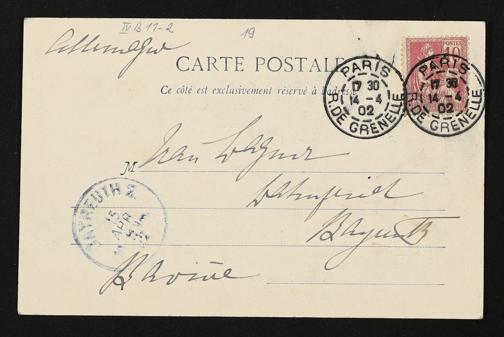 IV B 11-2
19
Allemagne
CARTE POSTALE
Ce côté est exclusivement réservé à l'adresse
POSTES
10
PARIS
17 30
14 -4
02
R. DE GRENELLE
PARIS
17 30
14 -4
02
R. DE GRENELLE
M
Frau Wagner
Wahnfried
Bayreuth
Bavière
BAYREUTH 2.
15
APR